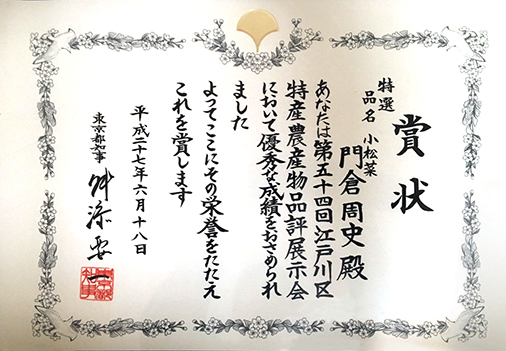 賞状
特選
品名 小松菜
門倉周史殿
あなたは第五十四回江戸川区
特産農産物品評展示会
において優秀な成績をおさめられ
ました
よってここにその栄誉をたたえ
これを賞します
平成二十七年六月十八日
東京都知事 舛添要一